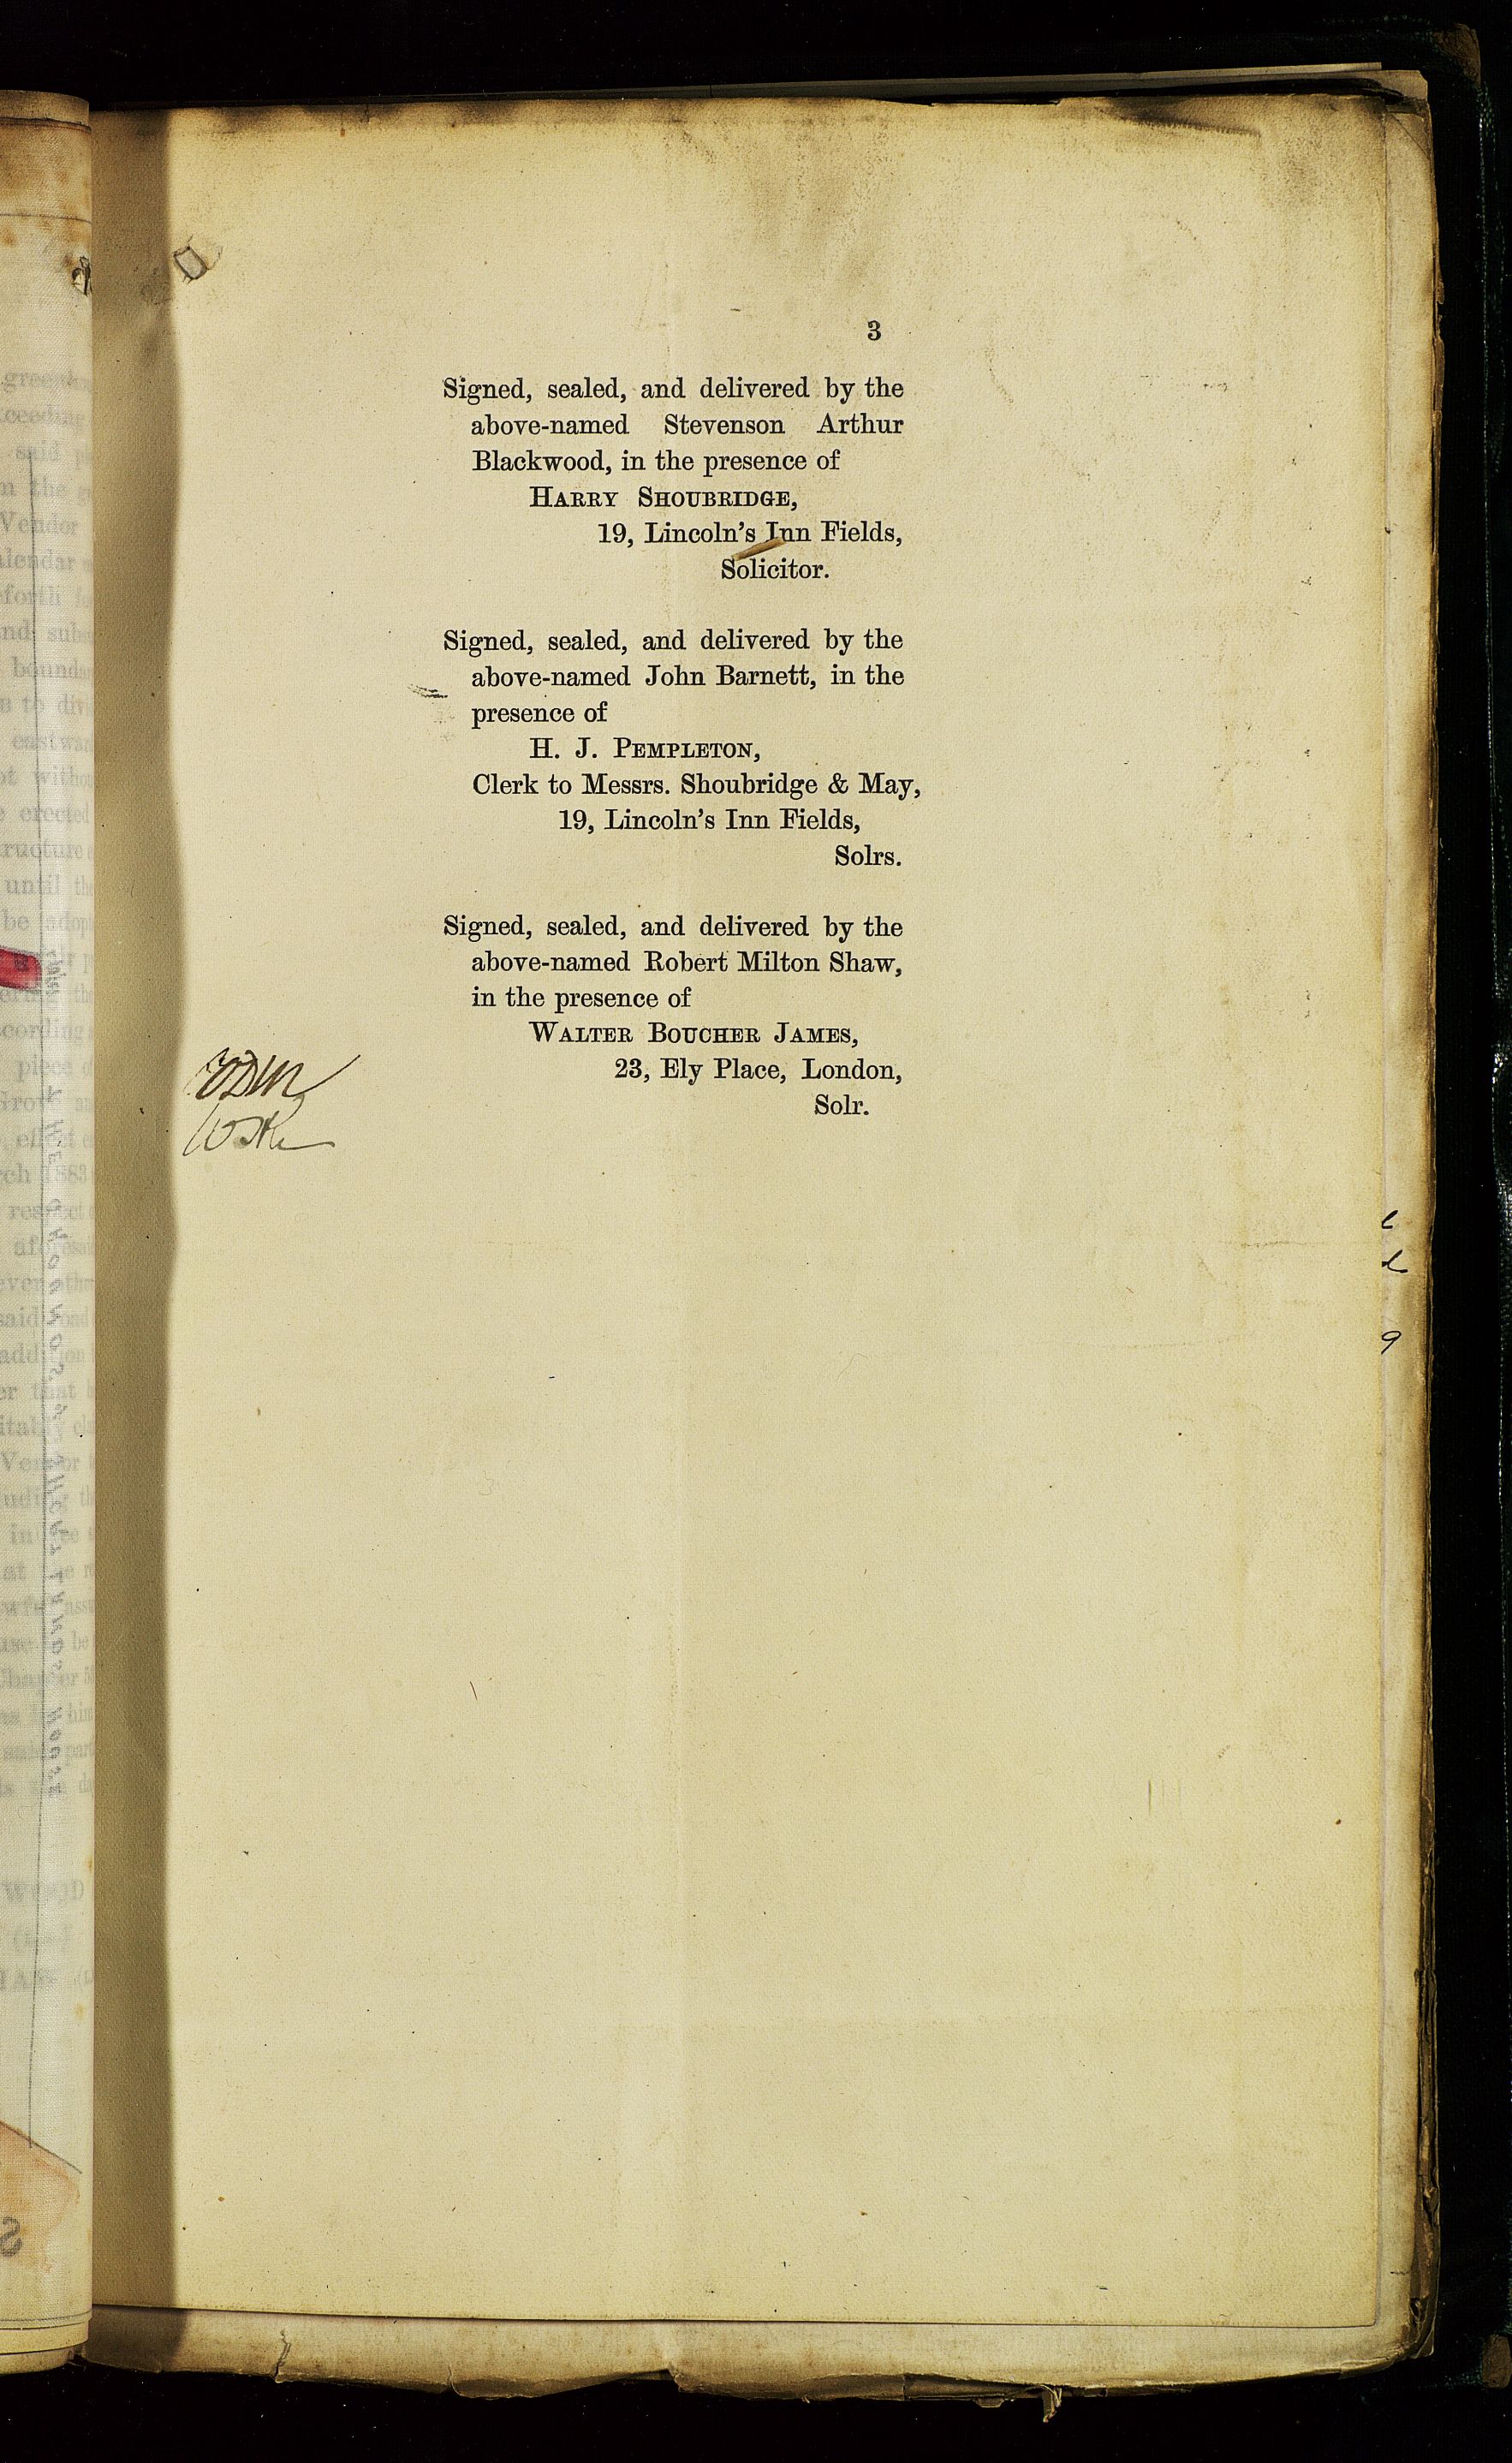 3
Signed, sealed, and delivered by the
above-named Stevenson Arthur
Blackwood, in the presence of
HARRY SHOUBRIDGE,
19, Lincoln's Inn Fields,
Solicitor.
Signed, sealed, and delivered by the
above-named John Barnett, in the
presence of
H. J. PEMPLETON,
Clerk to Messrs. Shoubridge & May,
19, Lincoln's Inn Fields,
Solrs.
Signed, sealed, and delivered by the
above-named Robert Milton Shaw,
in the presence of
WALTER BOUCHER JAMES,
23, Ely Place, London,
Solr.